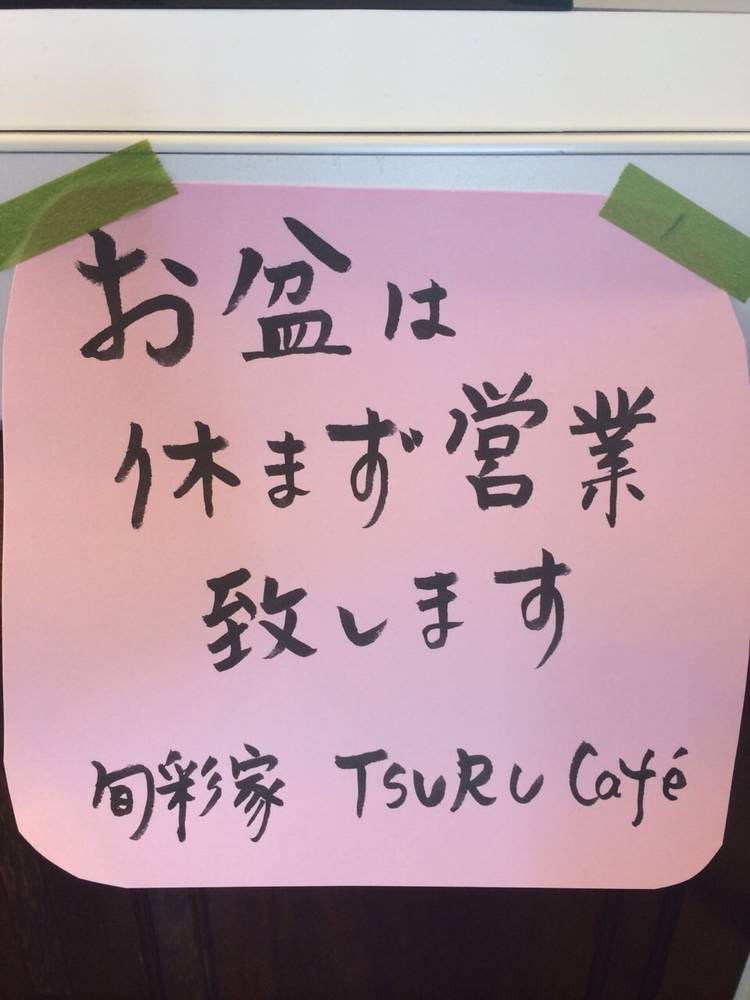 お盆は
休まず営業
致します
旬彩家 TSURU Café